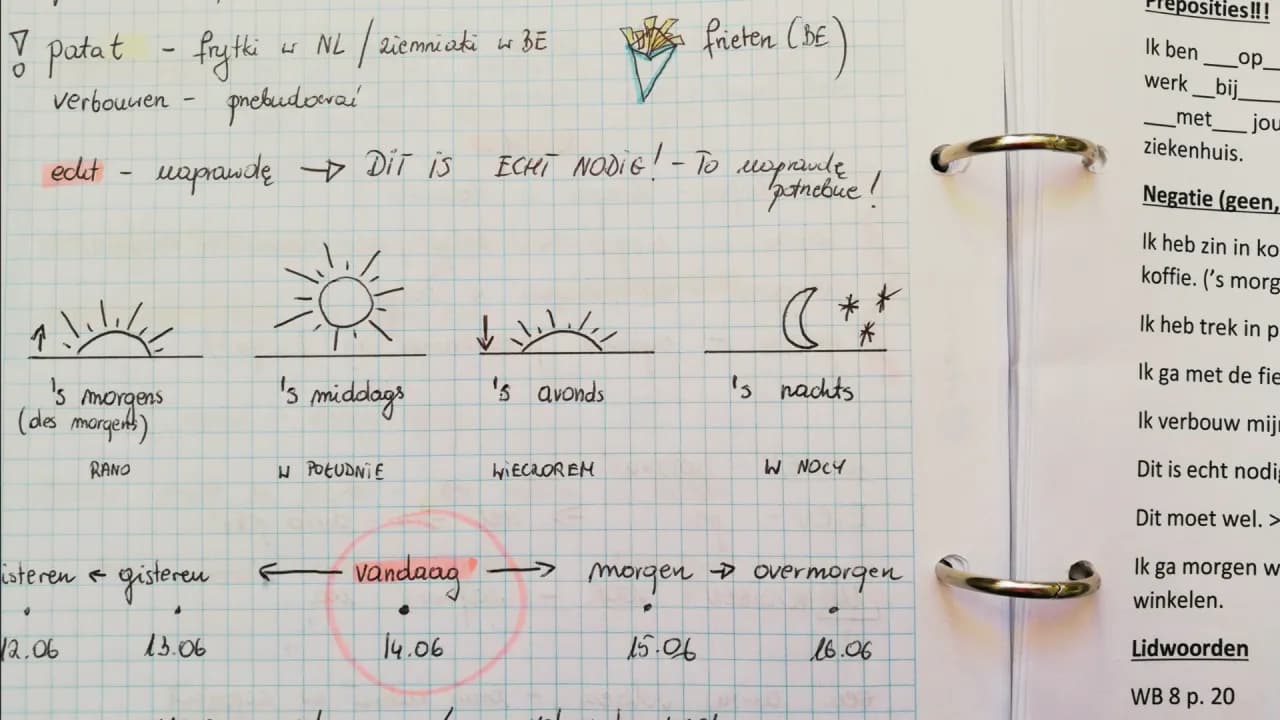 ! patat - frytki w NL / ziemniaki w BE
frieten (BE)
verbouwen - przebudować
echt - naprawdę → DIT IS ECHT NODIG! - To naprawdę
potrzebne!
's morgens
(des morgens)
RANO
's middags
W POŁUDNIE
's avonds
WIECZOREM
's nachts
W NOCY
isteren ← gisteren ← vandaag → morgen → overmorgen
12.06 13.06 14.06 15.06 16.06
Preposities!!!
Ik ben ___op_
werk __bij___
___met___ jou
ziekenhuis.
Negatie (geen,
Ik heb zin in ko
koffie. ('s morg
Ik heb trek in p
Ik ga met de fie
Ik verbouw mij
Dit is echt nodig
Dit moet wel. >
Ik ga morgen w
winkelen.
Lidwoorden
WB 8 p. 20